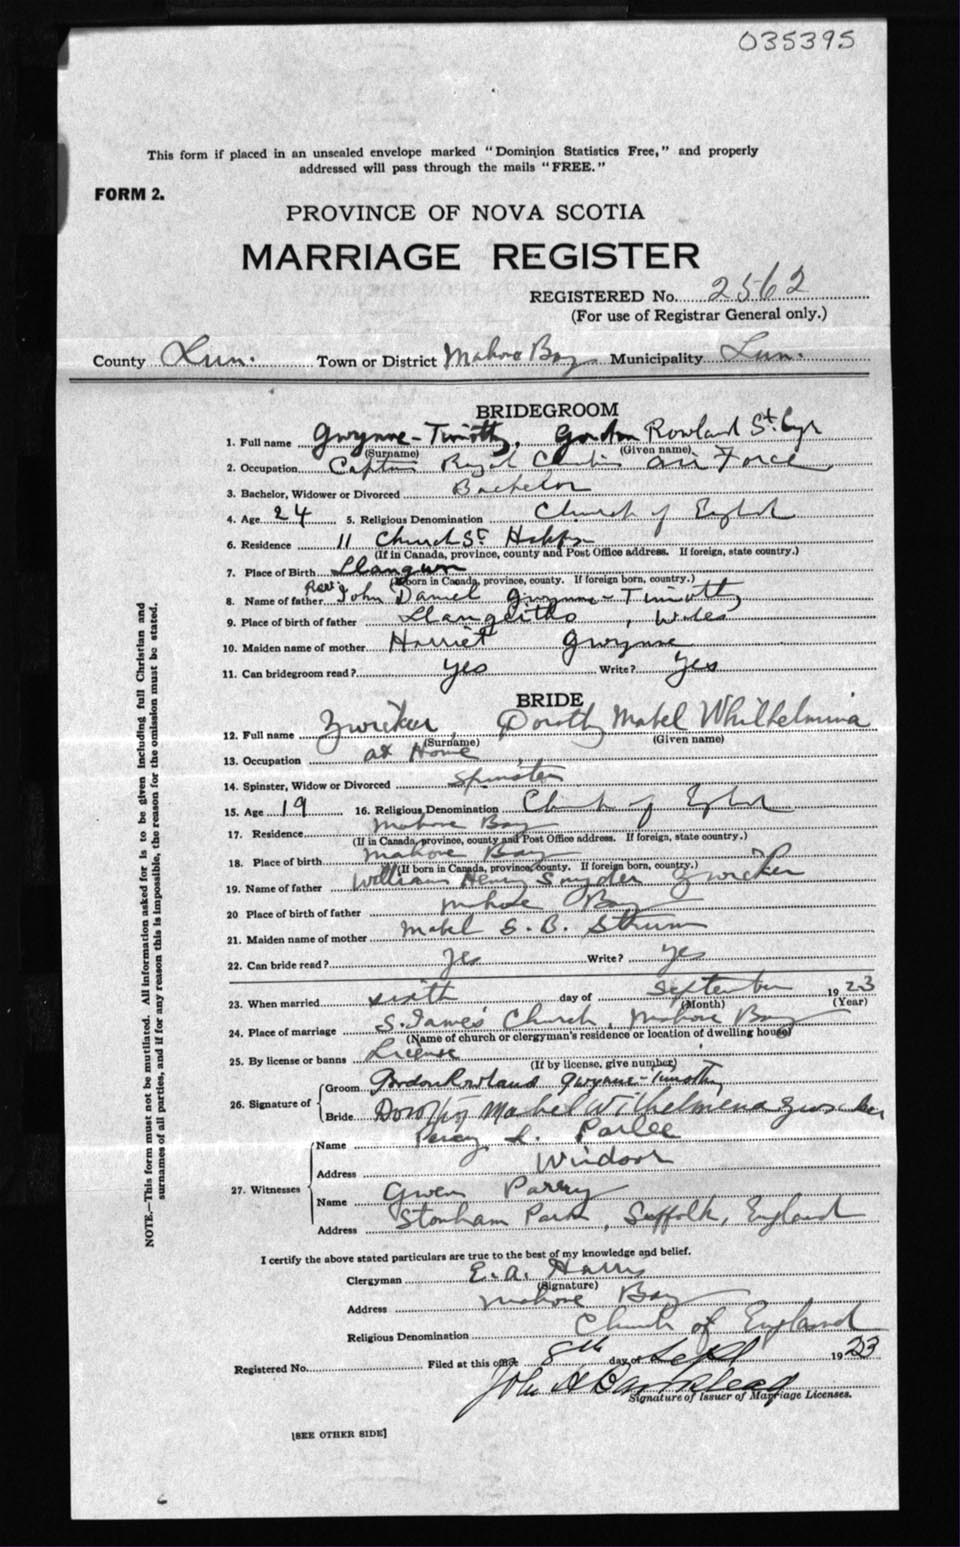 035395
This form if placed in an unsealed envelope marked "Dominion Statistics Free," and properly
addressed will pass through the mails "FREE."
FORM 2.
PROVINCE OF NOVA SCOTIA
MARRIAGE REGISTER
REGISTERED No. 2562
(For use of Registrar General only.)
County Lun. Town or District Mahone Bay Municipality Lun.
BRIDEGROOM
1. Full name Gwynne-Timothy, Gordon Rowland St. Cyr
(Surname) (Given name)
2. Occupation Captain Royal Canadian Air Force
3. Bachelor, Widower or Divorced Bachelor
4. Age 24 5. Religious Denomination Church of England
6. Residence 11 Church St
(If in Canada, province, county and Post Office address. If foreign, state country.)
7. Place of Birth
(If born in Canada, province, county. If foreign born, country.)
8. Name of father Rev. John Daniel Gwynne-Timothy
9. Place of birth of father , Wales
10. Maiden name of mother Harriet Gwynne
11. Can bridegroom read? yes Write? yes
BRIDE
12. Full name Zwicker Dorothy Mabel Whilhelmina
(Surname) (Given name)
13. Occupation at Home
14. Spinster, Widow or Divorced Spinster
15. Age 19 16. Religious Denomination Church of England
17. Residence Mahone Bay
(If in Canada, province, county and Post Office address. If foreign, state country.)
18. Place of birth Mahone Bay
(If born in Canada, province, county. If foreign born, country.)
19. Name of father William Henry Snyder Zwicker
20 Place of birth of father Mahone Bay
21. Maiden name of mother Mabel S. B. Strum
22. Can bride read? yes Write? yes
23. When married sixth day of September 1923
(Month) (Year)
24. Place of marriage S. James' Church, Mahone Bay
(Name of church or clergyman's residence or location of dwelling house)
25. By license or banns License
(If by license, give number)
26. Signature of
Groom Gordon Rowland Gwynne-Timothy
Bride Dorothy Mabel Wilhelmena Zwicker
27. Witnesses
Name Percy L. Parlee
Address Windsor
Name Gwen Parry
Address Stonham Park, Suffolk, England
I certify the above stated particulars are true to the best of my knowledge and belief.
Clergyman E. A. Harris
(Signature)
Address Mahone Bay
Religious Denomination Church of England
Registered No. Filed at this office 8th day of Sept 1923
John H
Signature of Issuer of Marriage Licenses.
[SEE OTHER SIDE]
NOTE.—This form must not be mutilated. All information asked for is to be given including full Christian and
surnames of all parties, and if for any reason this is impossible, the reason for the omission must be stated.